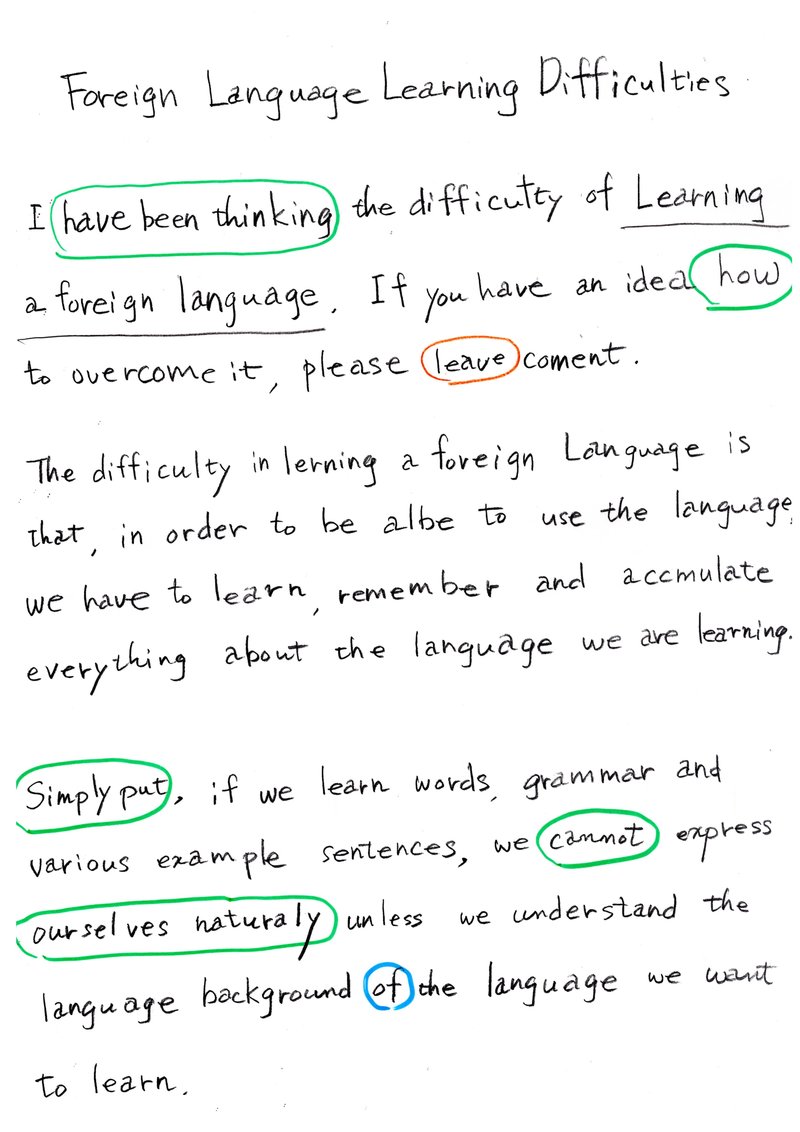 Foreign Language Learning Difficulties
I have been thinking the difficulty of Learning
a foreign language. If you have an idea how
to overcome it, please leave coment.
The difficulty in lerning a foreign Language is
that, in order to be albe to use the language,
we have to learn, remember and accmulate
everything about the language we are learning.
Simply put, if we learn words, grammar and
various example sentences, we cannot express
ourselves naturaly unless we understand the
language background of the language we want
to learn.